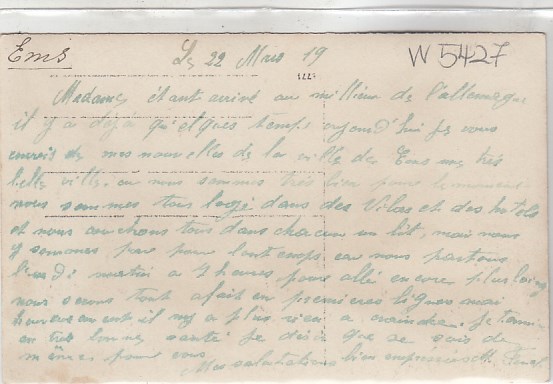 Ems
Le 22 Mars 19
W 5427
1771
Madame étant arrivé au millieu de l'allemagne
il y a deja quelques temps aujourd'hui je vous
envois de mes nouvelles de la ville de Ems une très
belle ville ou nous sommes très bien pour le moment
nous sommes tous logé dans des Vilas et des hotels
et nous couchons tous dans chacun un lit, mais nous
y sommes pas pour lontemps car nous partons
lundi matin a 7 heures pour allé encore plus loing
nous serons tout afait en premieres lignes mai
heureusement il ny a plus rien a craindre. Je termine
en très bonne santé je désire que se sois de
même pour vous.
Mes salutations bien empressées